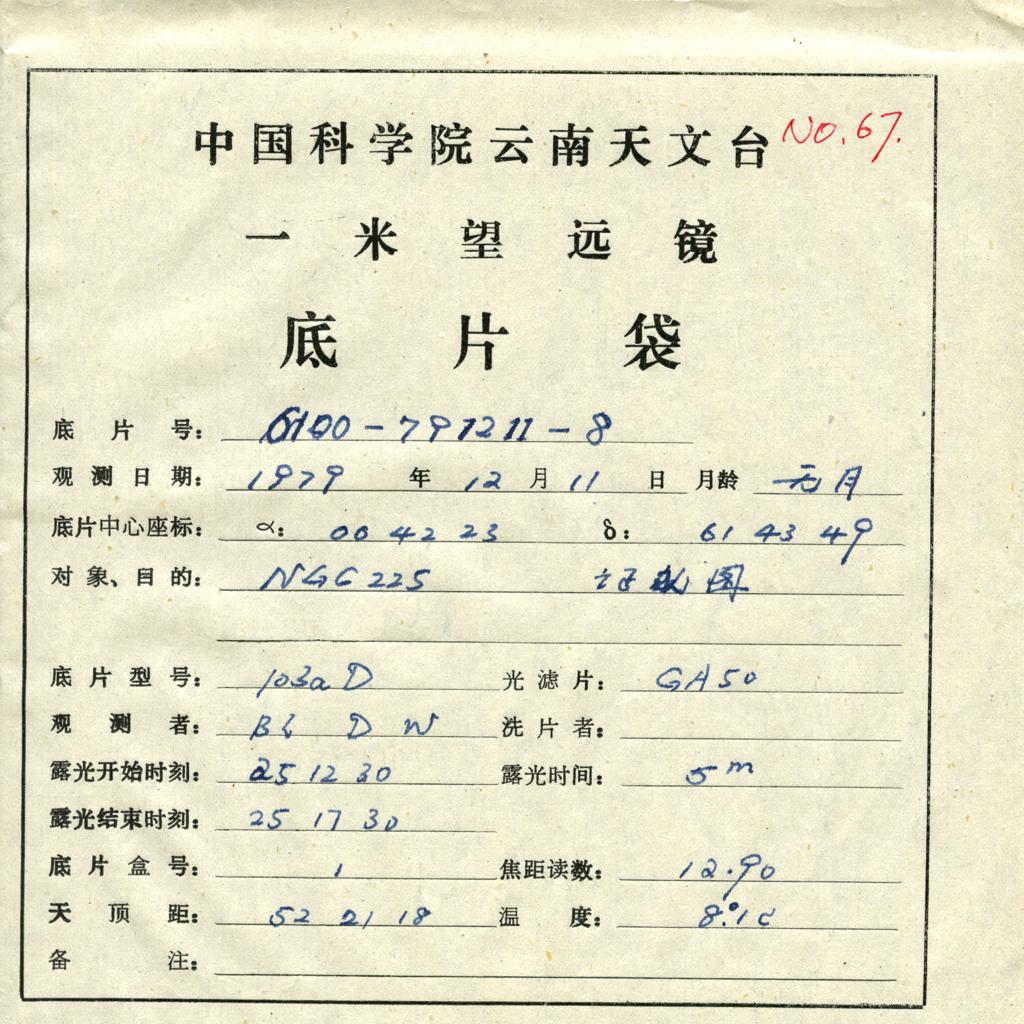 中国科学院云南天文台 NO.67.
一米望远镜
底片袋
底片号: 6100-791211-8
观测日期: 1979年12月11日 月龄 无月
底片中心座标: α: 00 42 23 δ: 61 43 49
对象、目的: NGC 225 证认图
底片型号: 103aD 光滤片: GA50
观测者: BL D W 洗片者:
露光开始时刻: 25 12 30 露光时间: 5m
露光结束时刻: 25 17 30
底片盒号: 1 焦距读数: 12.90
天顶距: 52 21 18 温度: 8.°1c
备注: